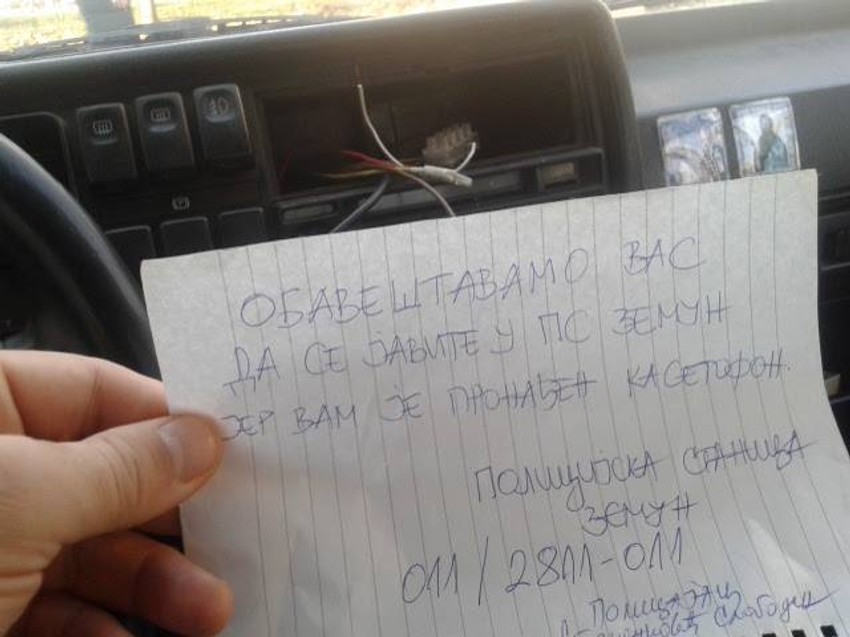 ОБАВЕШТАВАМО ВАС
ДА СЕ ЈАВИТЕ У ПС ЗЕМУН
ЈЕР ВАМ ЈЕ ПРОНАЂЕН КАСЕТОФОН.
ПОЛИЦИЈСКА СТАНИЦА
ЗЕМУН
011/2811-011
Полицајац
Слободан